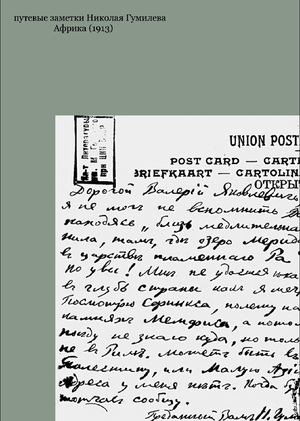 путевые заметки Николая Гумилева
Африка (1913)
UNION POST
POST CARD — CARTE
BRIEFKAART — CARTOLIN
ОТКРЫ
Дорогой Валерій Яковлевичъ
я не могъ не вспомнить
находясь „близь медлительна
Нила, тамъ, гдѣ озеро Мерида
въ царствѣ пламеннаго Ра
Но увы! Мнѣ не удается
въ глубь страны какъ я меч
Посмотрю Сфинкса, полежу на
камняхъ Мемфиса, а пото
поѣду не знаю куда, но толь
не въ Римъ. Можетъ быть въ
Палестину, или Малую Азі
Адреса у меня нѣтъ. Когда
тотчасъ сообщу.
Преданный Вамъ Н. Гум